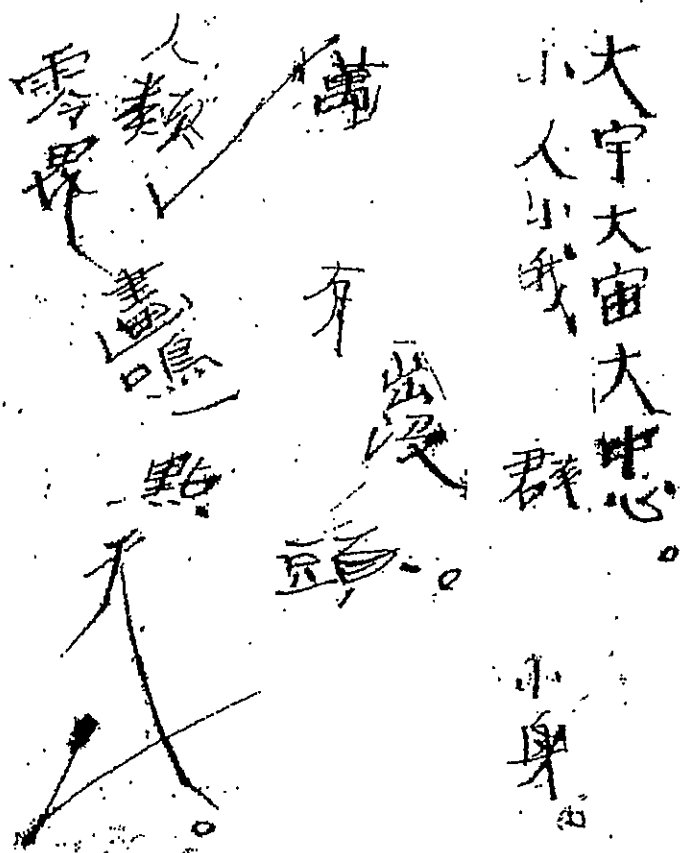 大宇大宙大忠。
小人小我 群 小與
萬 有 出沒 頭。
人類
零界 畫鳴一點 天